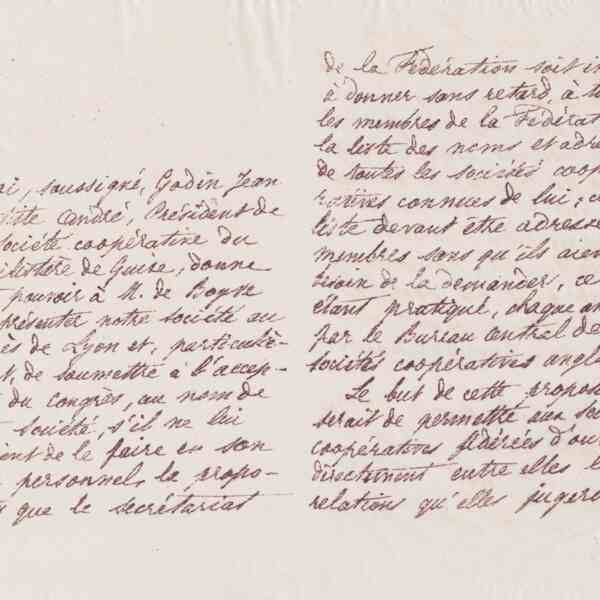 ai, soussigné, Godin Jean
iste André, Président de
ociété coopérative du
ilistère de Guise, donne
pouvoir à M. de Boyve
présenter notre société au
ès de Lyon et, particuliè-
t, de soumettre à l'accep-
du congrès, au nom de
société, s'il ne lui
ient de le faire en son
personnel, la propo-
que le secrétariat
de la Fédération soit in
à donner sans retard, à to
les membres de la Fédérat
la liste des noms et adre
de toutes les sociétés coop
ratives connues de lui; c
liste devant être adressé
membres sans qu'ils aien
besoin de la demander, ce
étant pratiqué, chaque an
par le Bureau Central de
sociétés coopératives angl
Le but de cette propos
serait de permettre aux so
coopératives fédérées d'ou
directement entre elles l
relations qu'elles jugero